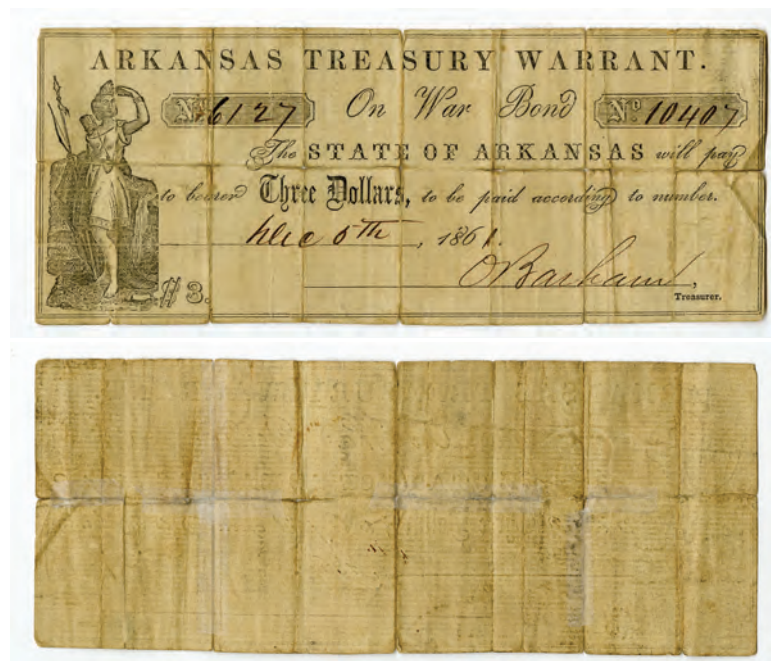 ARKANSAS TREASURY WARRANT.
No. 6127 On War Bond No. 10407
The STATE OF ARKANSAS will pay
to bearer Three Dollars, to be paid according to number.
Dec 5th, 1861.
O Barham,
$3.
Treasurer.